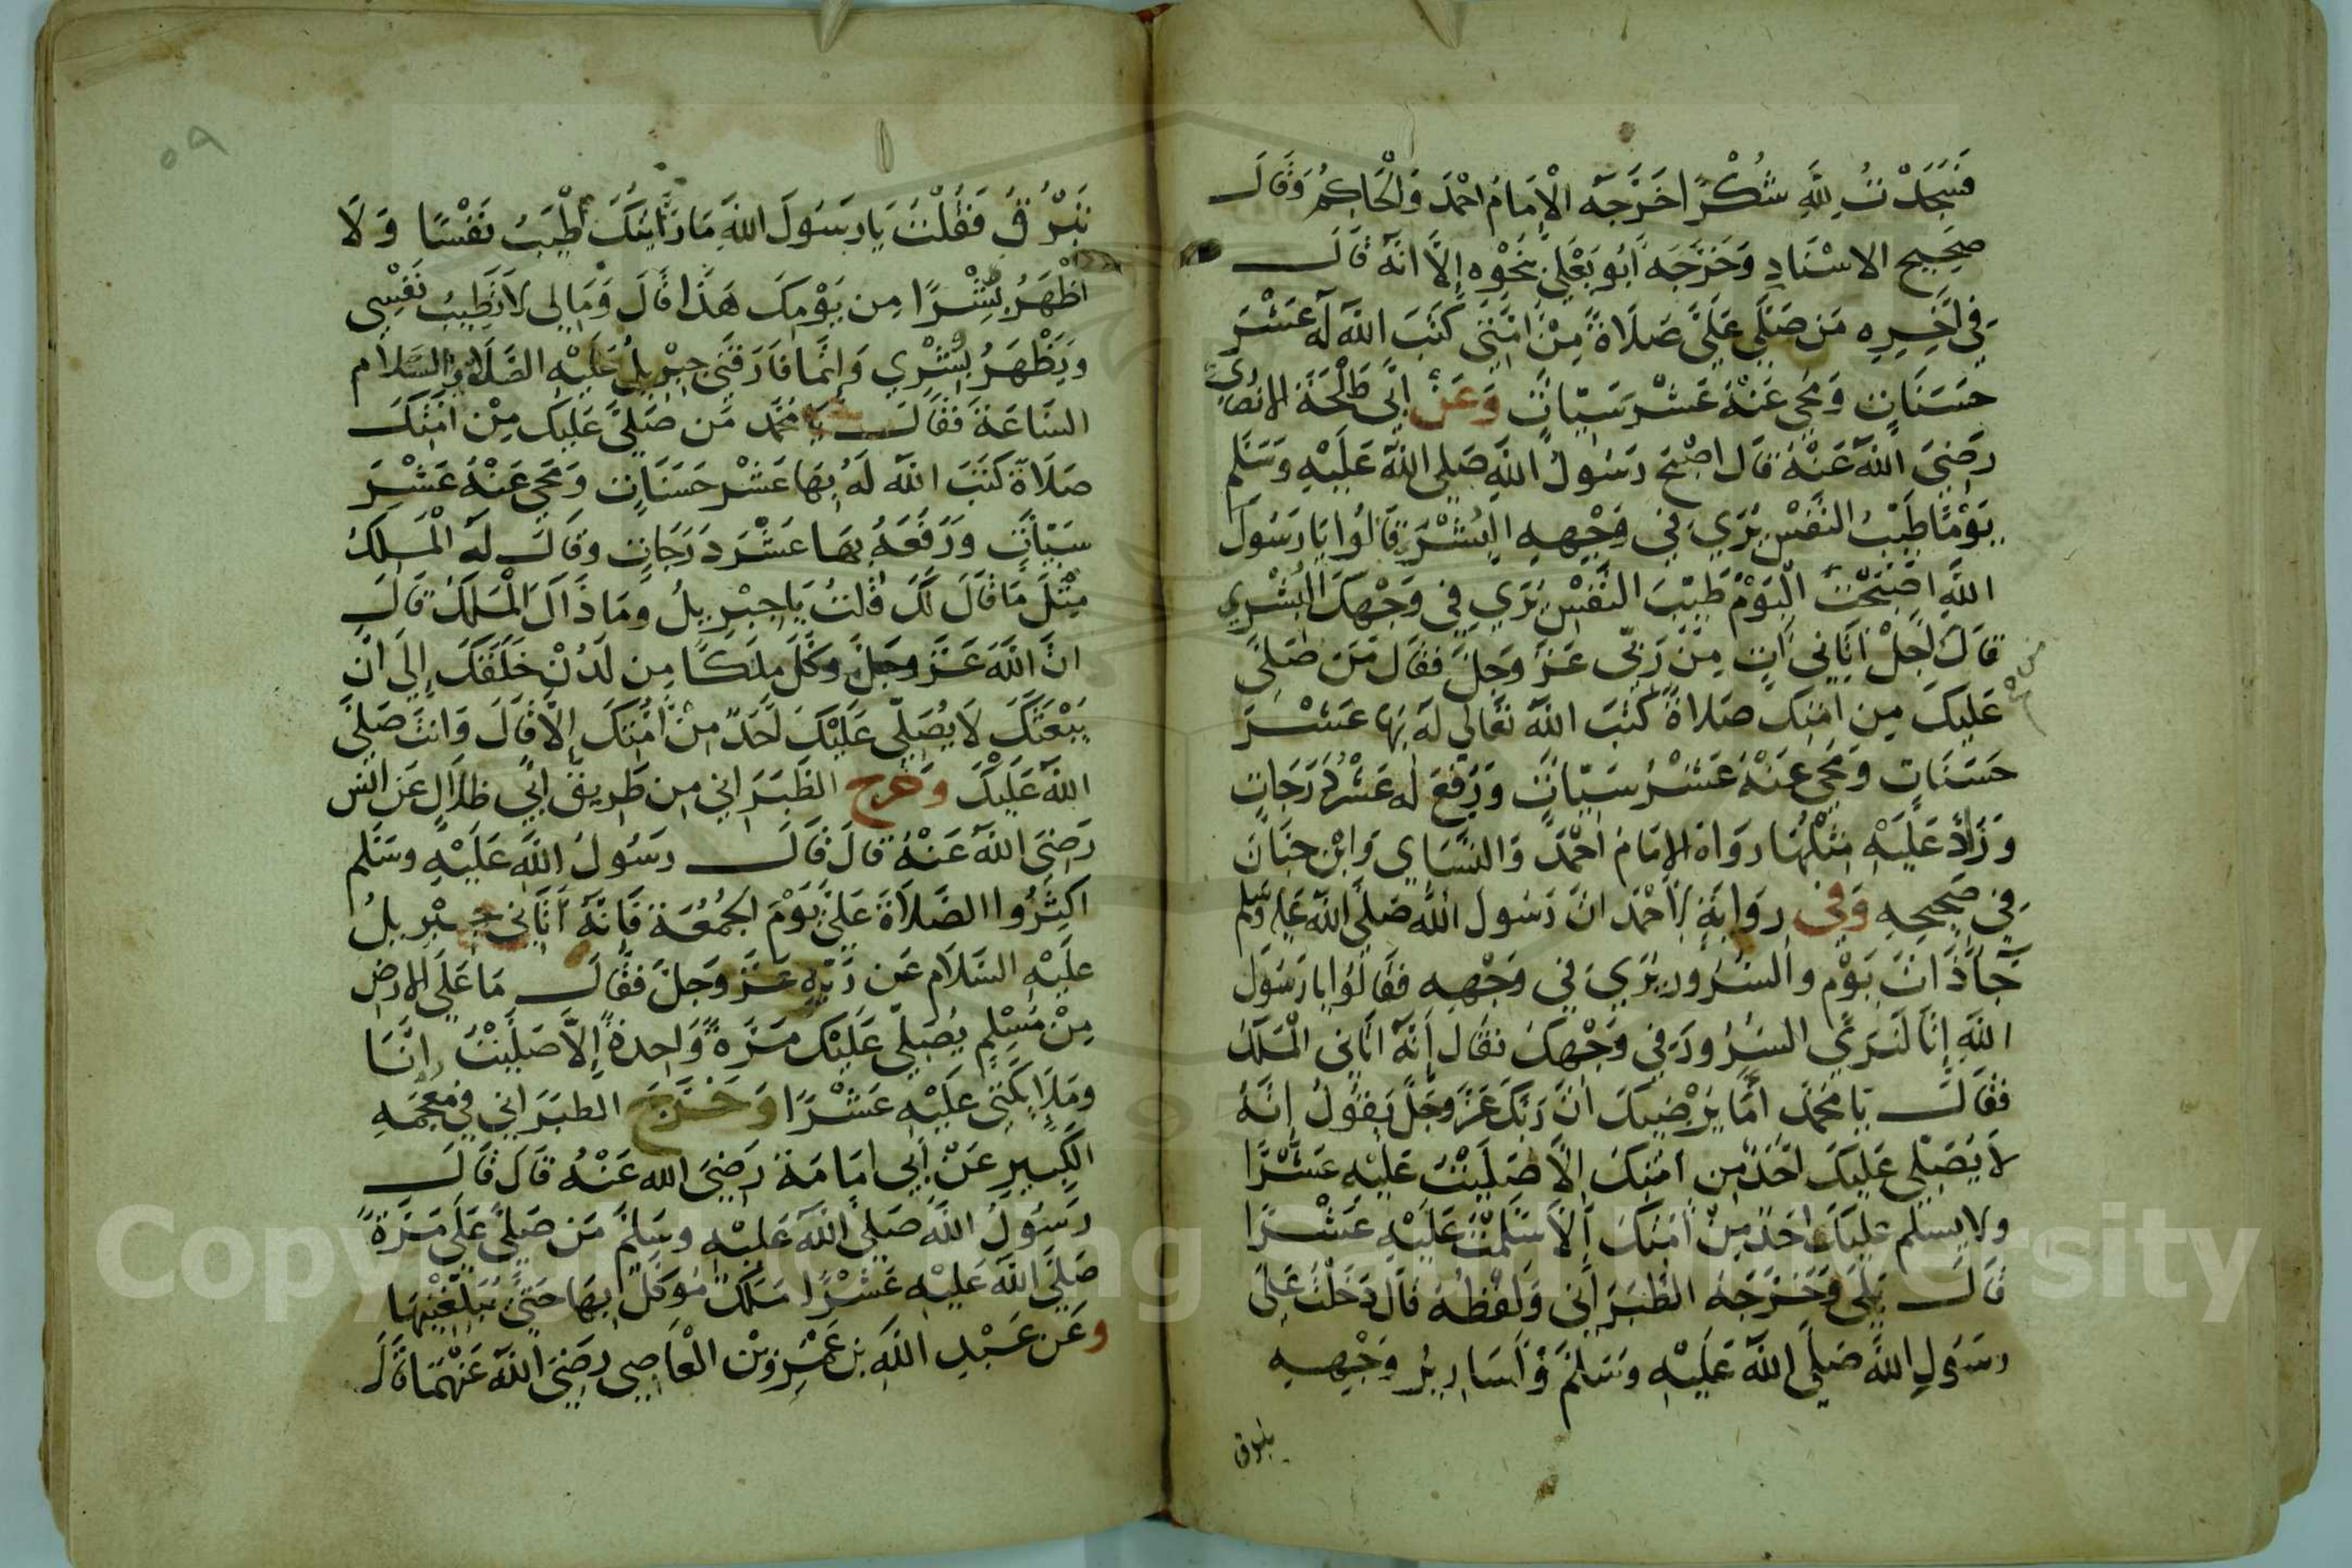 فَسَجَدْتُ لِلَّهِ شُكْرًا خَرَّجَهُ الْإِمَامُ احْمَدُ وَالْحَاكِمُ وَقَالَ
صَحِيحُ الاسْنَادِ وَخَرَّجَهُ أَبُو يَعْلَى بِنَحْوِهِ إِلَّا أَنَّهُ قَالَ
فِي آخِرِهِ مَن صَلَّى عَلَيَّ صَلَاةً مِنْ امَّتِي كَتَبَ اللَّهُ لَهُ عَشْرَ
حَسَنَاتٍ وَمَحَى عَنْهُ عَشْرَ سَيِّاتٍ وَعَنْ ابِي طَلْحَةَ الانْصَارِي
رَضِيَ اللَّهُ عَنْهُ قَالَ اصْبَحَ رَسُولُ اللَّهِ صَلى اللَّهُ عَلَيْهِ وَسَلَّم
يَوْمًا طَيِّبُ النَّفَسِ يُرَي فِي وَجْهِهِ الْبُشْرَى قَالُوا يَا رَسُولَ
اللَّهِ اصْبَحْتَ الْيَوْمَ طَيِّبَ النَّفْسِ يُرَي فِي وَجْهِكَ الْبُشْرِي
قَالَ اجَلْ اتَانِي اتٍ مِنْ رَبِّي عَزَّ وَجَلَّ فَقَالَ مَن صَلَّى
عَلَيكَ مِن امَّتِكَ صَلَاةً كَتَبَ اللَّهُ تَعَالَى لَهُ بِهَا عَشْرَ
حَسَنَاتٍ وَمَحَى عَنْهُ عَشْرُ سَيِّاتٍ وَرَفَعَ لَهُ عَشْرَ دَرَجَاتٍ
وَزَادَ عَلَيْهِ مِثْلُهَا رَوَاهُ الامَامُ احْمَدُ وَالنَّسَاي وَابْنُ حِبَّانَ
فِي صَحِيحِهِ وَفِي رِوَايَةٍ لِاحْمَدَ انَّ رَسُولَ اللَّهِ صَلَّى اللَّهُ عَلَيْهِ وَسَلم
جَآءَ ذَاتَ يَوْمٍ والسُّرُورُ يُرَي فِي وَجْهِهِ فَقَالُوا يَا رَسُولَ
اللَّهِ إِنَّا لَنَرَى السُّرُورَ فِي وَجْهِكَ فقَالَ إِنَّهُ اتَانِي الْمَلَكُ
فَقَالَ يَا مُحَمَّدُ أَمَا يُرْضِيكَ انَّ رَبَّكَ عَزَّ وجَلَّ يَقُولُ إِنَّهُ
لَا يُصَلِّي عَلَيكَ احَدٌ مِن امَّتِكَ إِلَّا صَلَّيْتُ عَلَيْهِ عَشْرًا
ولا يُسَلِّم عَلَيْكَ احَدٌ مِنْ أُمَّتِكَ إِلَّا سَلَّمْتُ عَلَيْهِ عَشْرًا
قَالَ بَلَى وَخَرَّجَهُ الطَّبَرَانِي وَلَفْظُهُ قَالَ دَخَلْتُ عَلَى
رَسُولِ اللَّهِ صَلَّى اللَّهُ عَلَيْهِ وَسَلَّمَ وَأَسَارِيرُ وَجْهِهِ
٥٩
تَبْرُقُ فَقُلْتَ يَا رَسُولَ اللَّهِ مَا رَايْتُكَ أَطْيَبُ نَفْسًا وَلَا
اظْهَرُ بِشْرًا مِن يَوْمِكَ هَذَا قَالَ وَمَالِي لَا تَطِيبُ نَفْسِي
وَيَظْهَرُ بِشْرِي وَإِنَّمَا فَارَقَنِي جِبْرِيلُ عَلَيْهِ الصَّلَاةُ وَالسَّلَام
السَّاعَةَ فَقَالَ يَا مُحَمَّد مَن صَلَّى عَلَيكَ مِنْ امَّتِكَ
صَلَاةً كَتَبَ اللَّهُ لَهُ بِهَا عَشْرَ حَسَنَاتٍ وَمَحَى عَنْهُ عَشْرَ
سَيِّاتٍ وَرَفَعَهُ بِهَا عَشْرَ دَرَجَاتٍ وَقَالَ لَهُ الْمَلَكُ
مِثْلَ مَا قَالَ لَكَ قُلتُ يَا جِبْرِيلُ ومَا ذَاكَ الْمَلَكُ قَالَ
انَّ اللَّهَ عَزَّ وجَلَّ وَكَّلَ مَلَكًا مِن لَدُنْ خَلَقَكَ إِلَى انْ
يَبْعَثَكَ لَا يُصَلِّي عَلَيْكَ احَدٌ مِنْ أُمَّتِكَ إِلَّا قَالَ وَانتَ صَلَّى
اللَّهُ عَلَيْكَ وَخرج الطَّبَرَانِي مِن طَرِيقِ ابِي ظِلَالٍ عَن انَس
رَضِيَ اللَّهُ عَنْهُ قَالَ قَالَ رَسُولُ اللَّهِ عَلَيْهِ وسَلَّم
اكْثِرُوا الصَّلَاةَ عَلَيَّ يَوْمَ الجُمُعَةِ فَإِنَّهُ أَتَانِي جِبْرِيلُ
عَلَيْهِ السَّلَام عَن رَّبِّهِ عَزَّ وَجَلَّ فَقَالَ مَا عَلَى الارْضِ
مِنْ مُسْلِمٍ يُصَلِّي عَلَيْكَ مَرَّةً وَاحِدَةً إِلَّا صَلَّيْتُ انَا
وَمَلَا يِكَتِي عَلَيْهِ عَشْرًا وَخَرَّجَ الطَبَرَانِي فِي مُعْجَمِهِ
الكَبِيرِ عَنْ أَبِي امَامَةَ رَضِيَ الله عَنْهُ قَالَ قَالَ
رَسُولُ اللَّهِ صَلَّى اللَّهُ عَلَيْهِ وسَلَّمَ مَن صَلَّى عَلَيَّ مَرَّةً
صَلَّى اللَّهُ عَلَيْهِ عَشْرًا مَلَكٌ مُوَكَّلٌ بِهَا حَتَّى يُبَلِّغْنِيهَا
وعَن عَبْدِ اللَّهِ بن عَمْرِو بْن الْعَاصِي رَضِيَ اللَّهُ عَنْهُمَا قَالَ